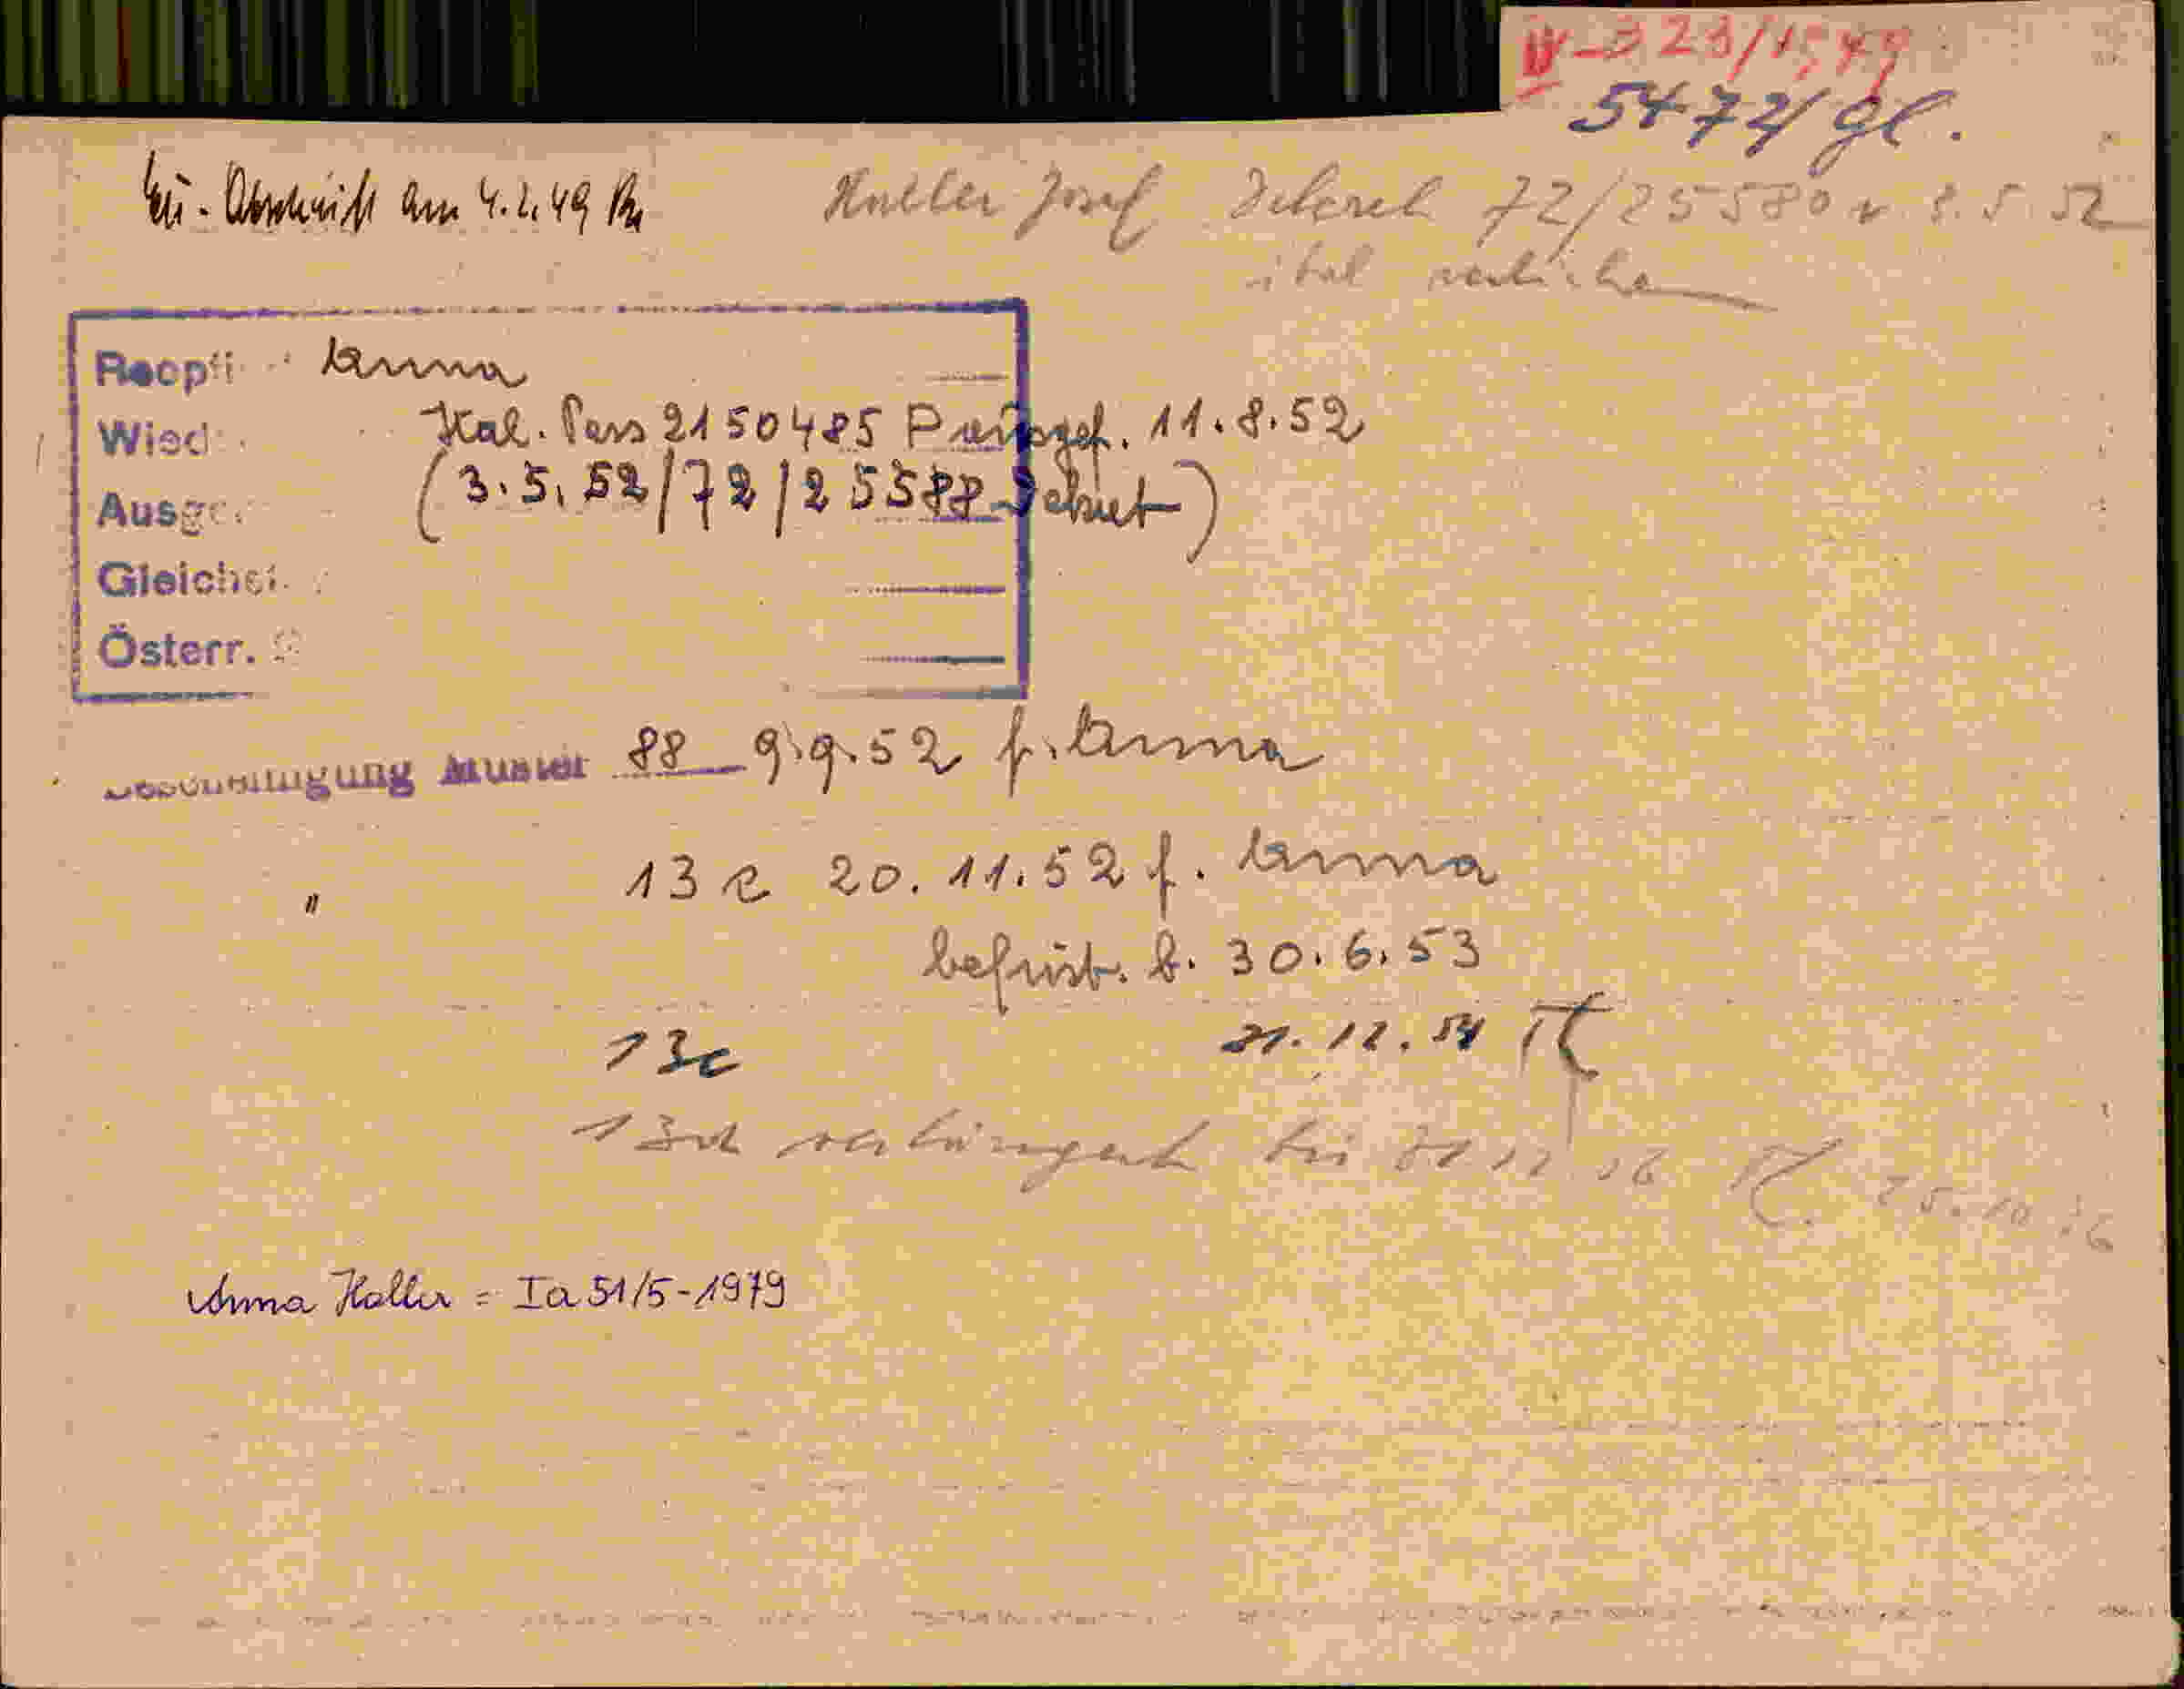 IV-323/1,49
5472/gl.
Abschrift am 4.2.49
Haller Josef Dekret 72/25580 v 3.5.52
ital
Reopti Anna
Wied Ital. Pass 2150485 11.8.52
Ausge (3.5.52/72/25588 Dekret)
Gleich
Österr.
88 9.9.52 f. Anna
" 13c 20.11.52 f. Anna
befrist. b. 30.6.53
13c 31.12.54
verlängert bis 31 12 56 25.10.56
Anna Haller = Ia 51/5-1979